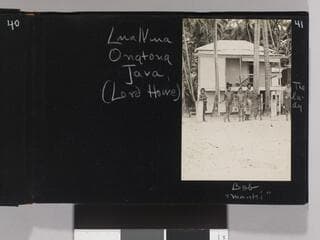 40
41
Luaniua
Ongtong
Java,
(Lord Howe)
The
la-
dy
Bob
"manki"